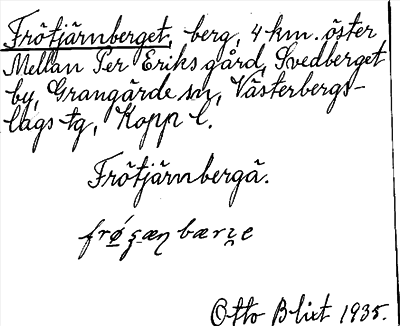 Frötjärnberget, berg, 4 km. öster
Mellan Per Eriks gård, Svedberget
by, Grangärde sn, Västerbergs-
lags tg, Kopp l.
Frötjärnbergä.
Otto Blixt 1935.